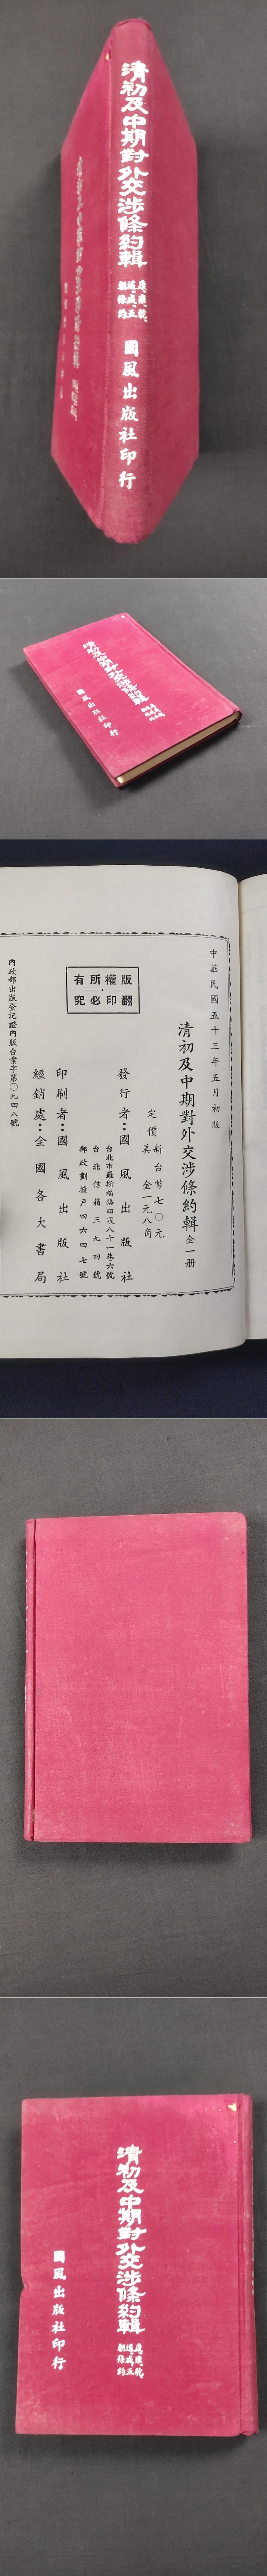 清初及中期對外交涉條約輯
康、雍、乾、
道、咸、五
朝條約
國風出版社印行
清初及中期對外交涉條約輯
國風出版社印行
中華民國五十三年五月初版
清初及中期對外交涉條約輯全一冊
定價
新台幣七〇元
美金一元八角
發行者：國風出版社
台北市羅斯福路四段八十一巷六號
台北信箱三九四號
郵政劃撥戶四六四七號
印刷者：國風出版社
經銷處：全國各大書局
版權所有
翻印必究
內政部出版登記證內版台業字第〇九四八號
清初及中期對外交涉條約輯
康、雍、乾、
道、咸、五
朝條約
國風出版社印行